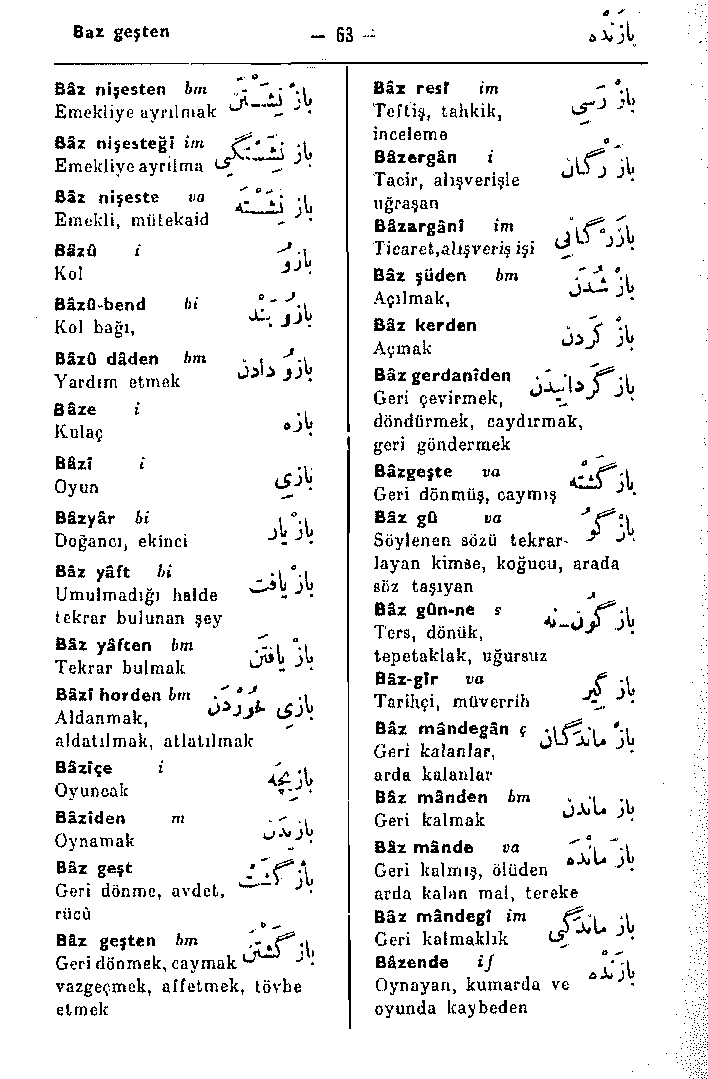 Baz geşten — 63 — بازنده
Bâz nişesten bm باز نشستن
Emekliye ayrılmak
Bâz nişesteğî im باز نشستگی
Emekliye ayrılma
Bâz nişeste va باز نشسته
Emekli, mütekaid
Bâzû i بازو
Kol
Bâzû-bend bi بازو بند
Kol bağı,
Bâzû dâden bm بازو دادن
Yardım etmek
Bâze i بازه
Kulaç
Bâzî i بازی
Oyun
Bâzyâr bi باز یار
Doğancı, ekinci
Bâz yâft bi باز یافت
Umulmadığı halde
tekrar bulunan şey
Bâz yâften bm باز یافتن
Tekrar bulmak
Bâzî horden bm بازی خوردن
Aldanmak,
aldatılmak, atlatılmak
Bâzîçe i بازیچه
Oyuncak
Bâzîden m بازیدن
Oynamak
Bâz geşt باز گشت
Geri dönme, avdet,
rücû
Bâz geşten bm باز گشتن
Geri dönmek, caymak
vazgeçmek, affetmek, tövbe
etmek
Bâz resî im باز رسی
Teftiş, tahkik,
inceleme
Bâzergân i بازرگان
Tacir, alışverişle
uğraşan
Bâzargânî im بازرگانی
Ticaret,alışveriş işi
Bâz şüden bm باز شدن
Açılmak,
Bâz kerden باز کردن
Açmak
Bâz gerdanîden باز گردانیدن
Geri çevirmek,
döndürmek, caydırmak,
geri göndermek
Bâzgeşte va باز گشته
Geri dönmüş, caymış
Bâz gû va باز گو
Söylenen sözü tekrar-
layan kimse, koğucu, arada
söz taşıyan
Bâz gûn-ne s باز گون‌نه
Ters, dönük,
tepetaklak, uğursuz
Bâz-gîr va باز گیر
Tarihçi, müverrih
Bâz mândegân ç باز ماندگان
Geri kalanlar,
arda kalanlar
Bâz mânden bm باز ماندن
Geri kalmak
Bâz mânde va باز مانده
Geri kalmış, ölüden
arda kalan mal, tereke
Bâz mândegî im باز ماندگی
Geri kalmaklık
Bâzende if بازنده
Oynayan, kumarda ve
oyunda kaybeden